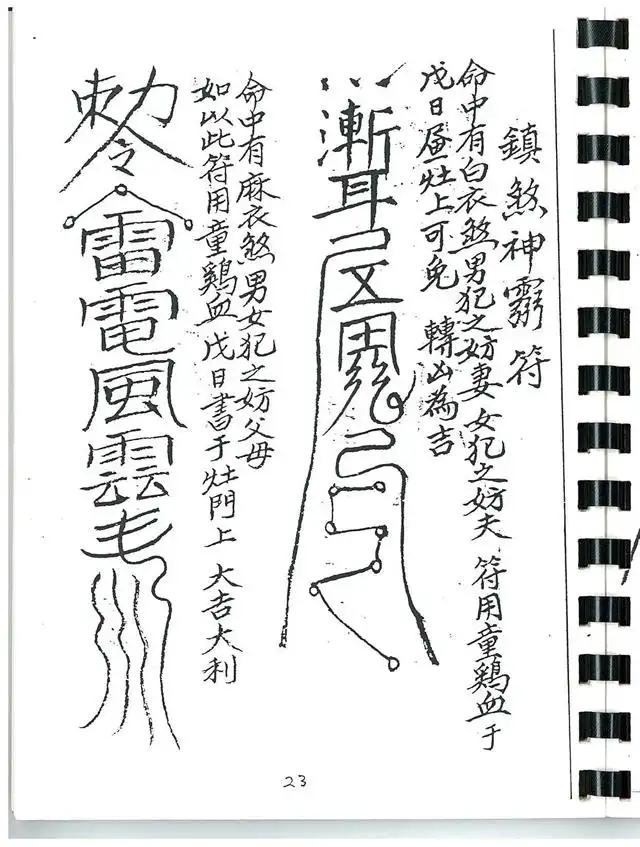 鎮煞神靈符
命中有白衣煞男犯之妨妻女犯之妨夫 符用童鷄血于
戊日昼灶上可免 轉凶為吉
漸耳
命中有麻衣煞男女犯之妨父母
如以此符用童鷄血戊日書于灶門上 大吉大利
勅令雷電風雲毛
23